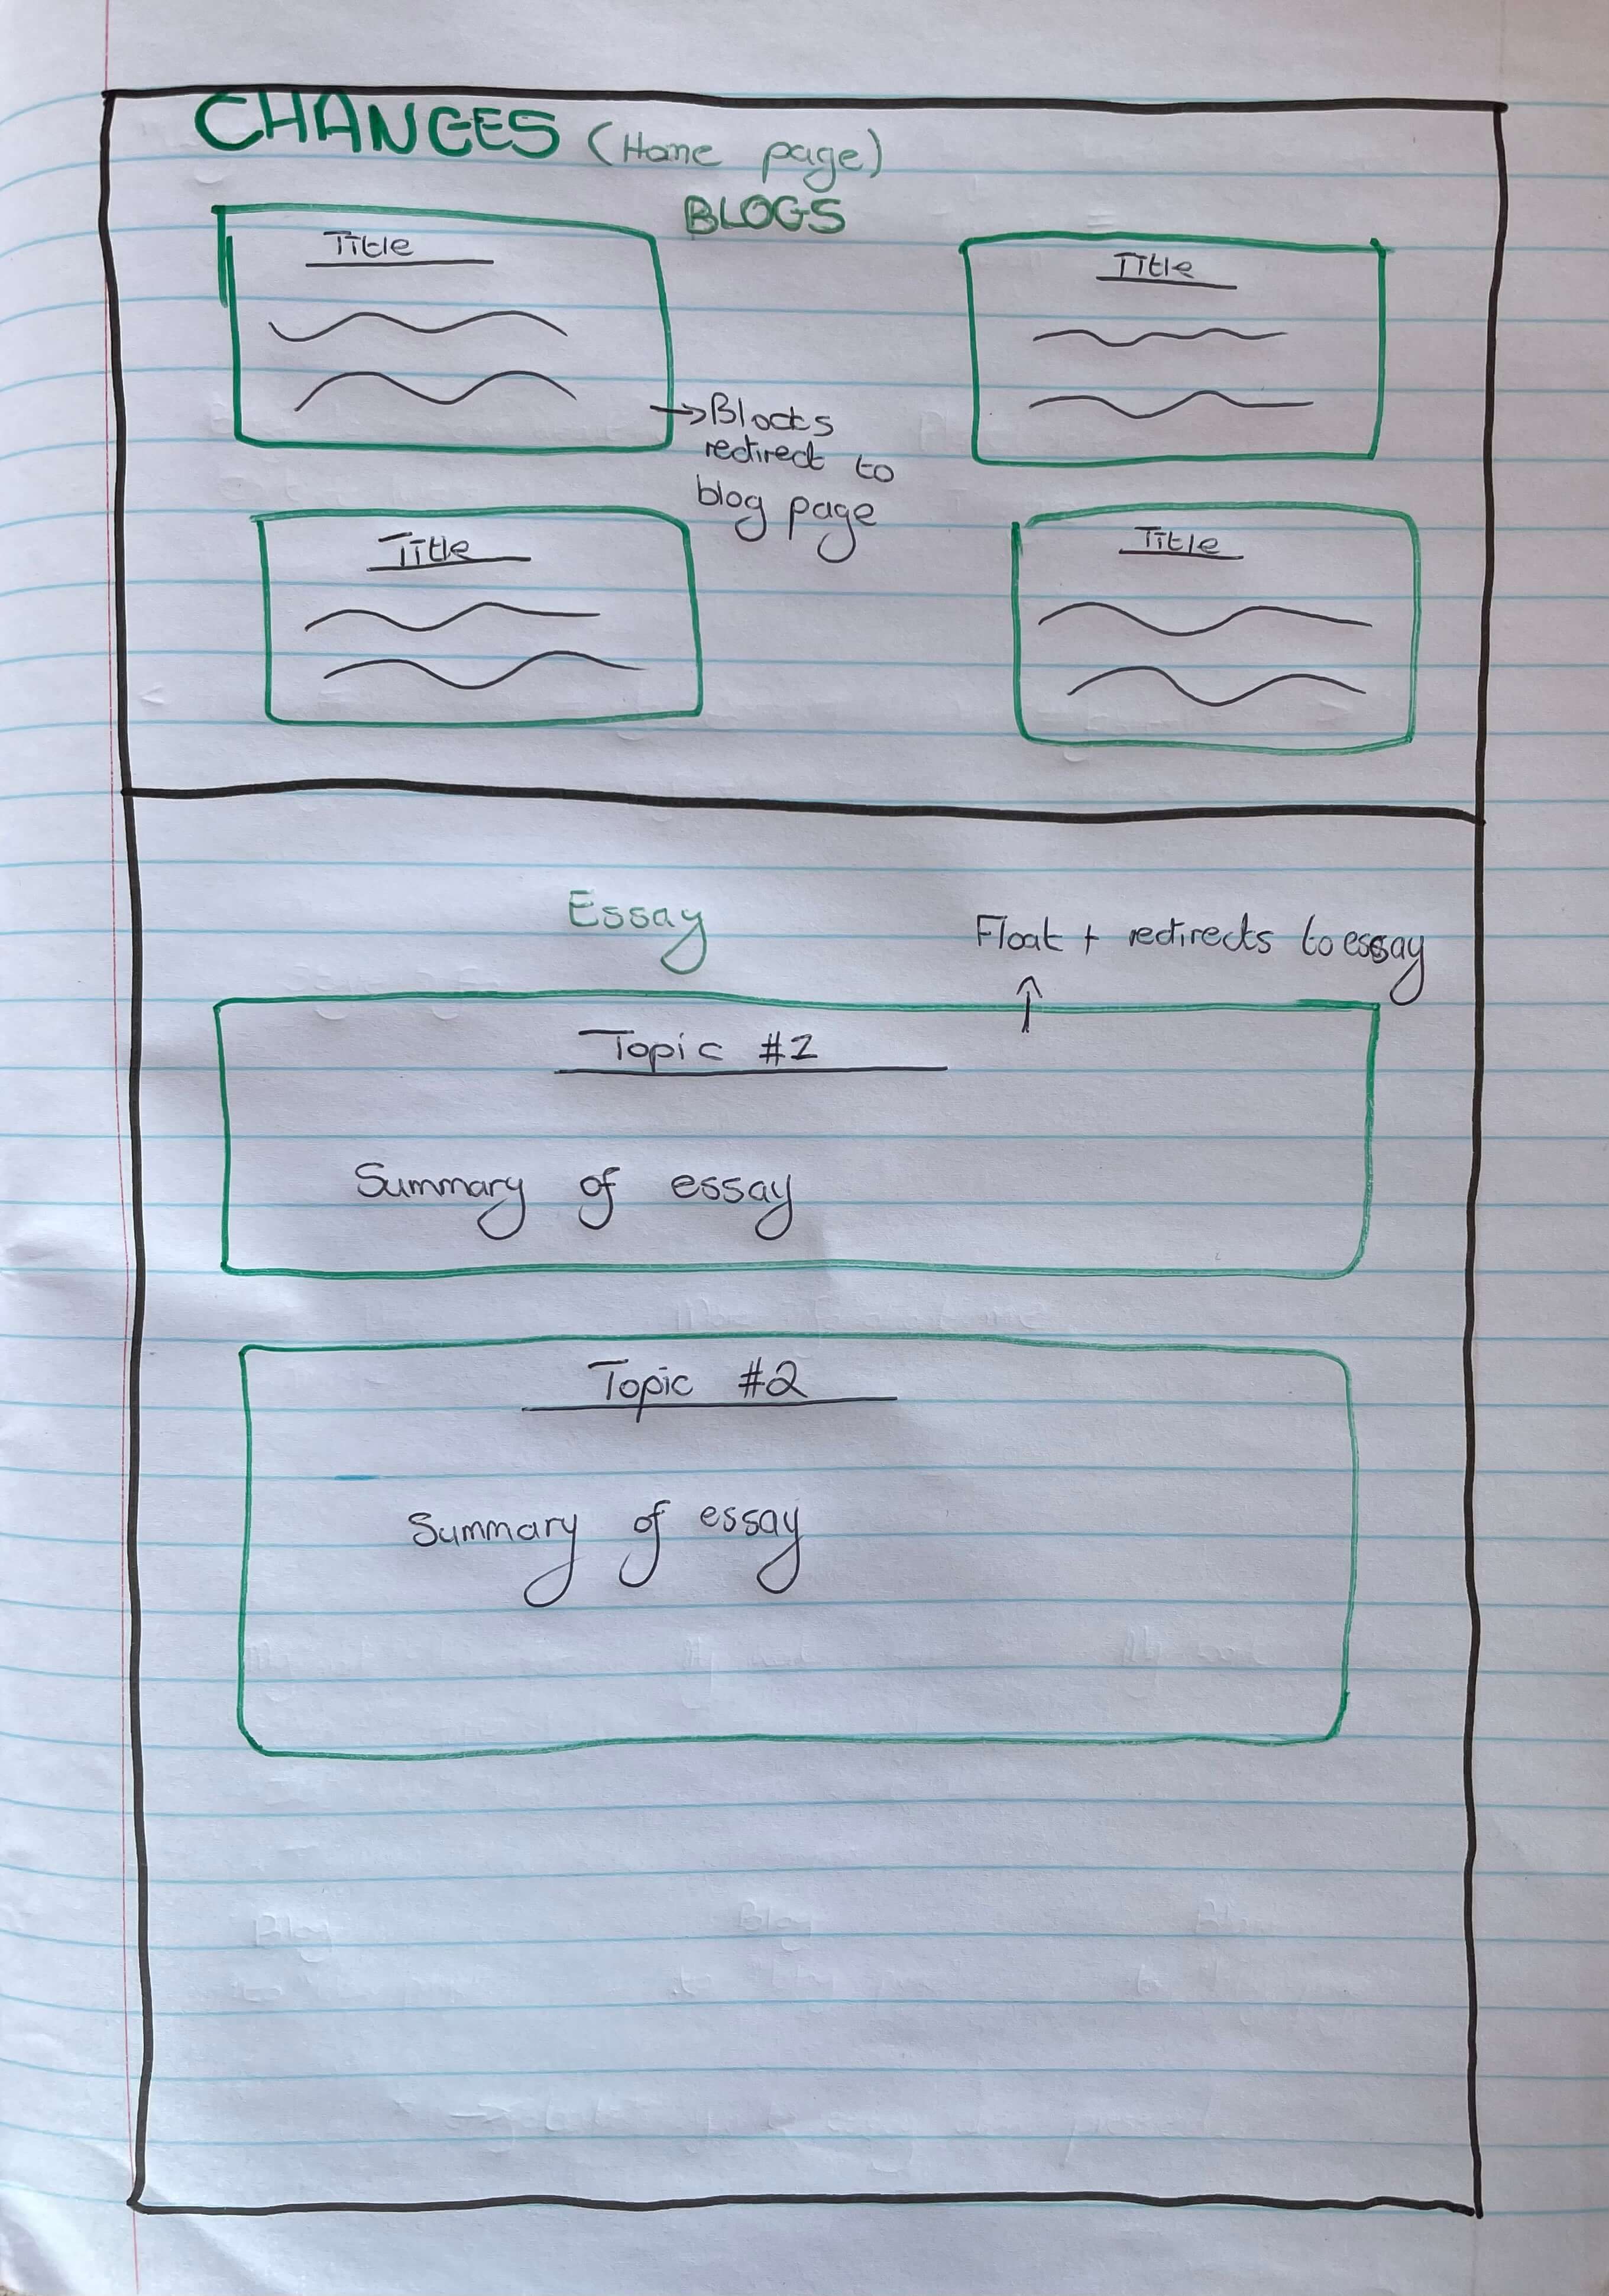 CHANGES (Home page)
BLOGS
Title
Title
→Blocks
redirect to
blog page
Title
Title
Essay
Float + redirects to essay
Topic #1
Summary of essay
Topic #2
Summary of essay